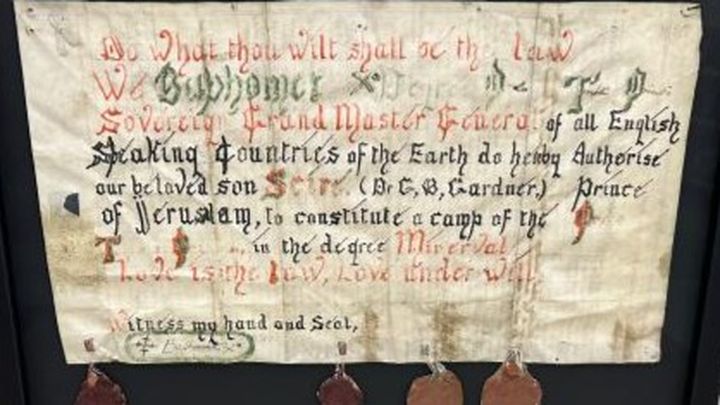 Do what thou wilt shall be the law
We Baphomet X° Degree
Sovereign Grand Master General of all English
Speaking Countries of the Earth do hereby Authorise
our beloved son Scire, (Dr G, B, Gardner,) Prince
of Jerusalam, to constitute a camp of the
in the degree Minerval
Love is the law, Love under will,
Witness my hand and Seal,